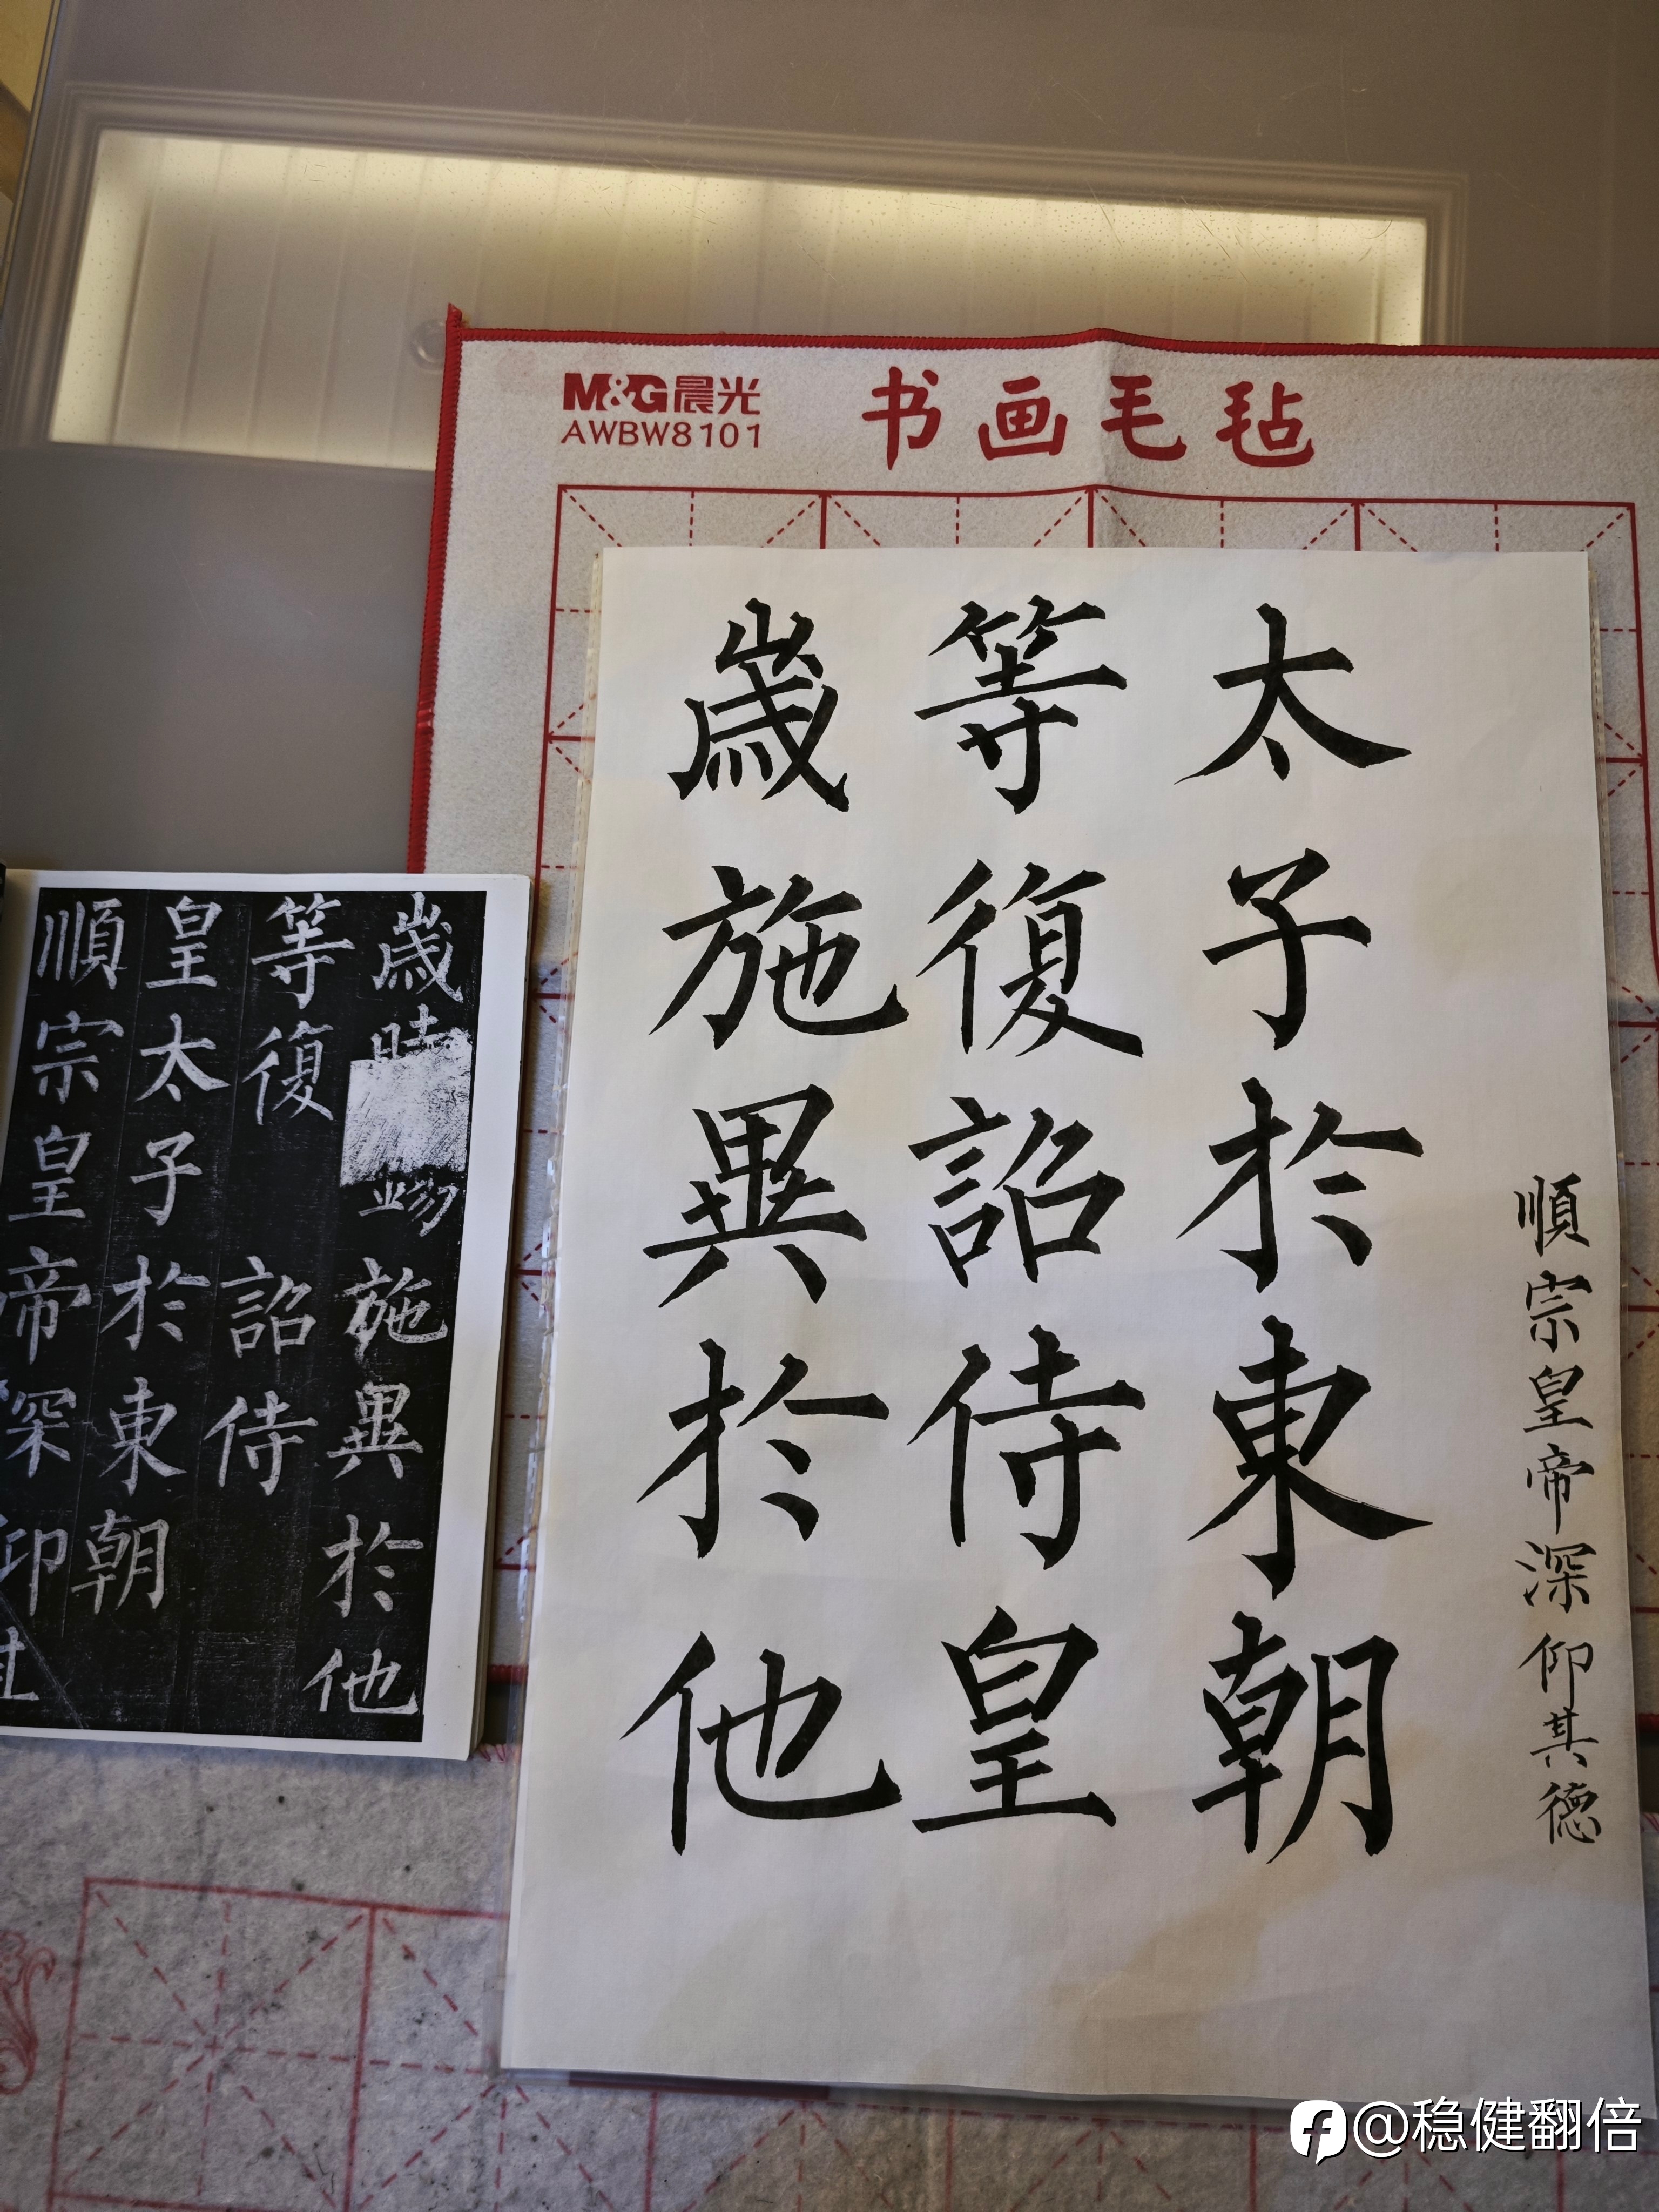 M&G晨光
AWBW8101
书画毛毡
歲施異於他
等復詔侍皇
太子於東朝
順宗皇帝深仰其德
歲施異於他
等復詔侍
皇太子於東朝
順宗皇帝深仰
@稳健翻倍